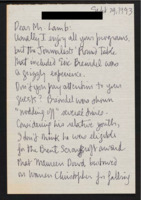 Sept 19, 1993
Dear Mr. Lamb:
Usually I enjoy all your programs,
but the Journalists' Round Table
that included Eric Breindel was
a grizzly experience.
Don't you pay attention to your
guest? Breindel was shown
"nodding off" several times.
Considering his relative youth,
I don't think he was eligible
for the Brent Scowcroft award
that Maureen Dowd bestowed
on Warren Christopher for falling